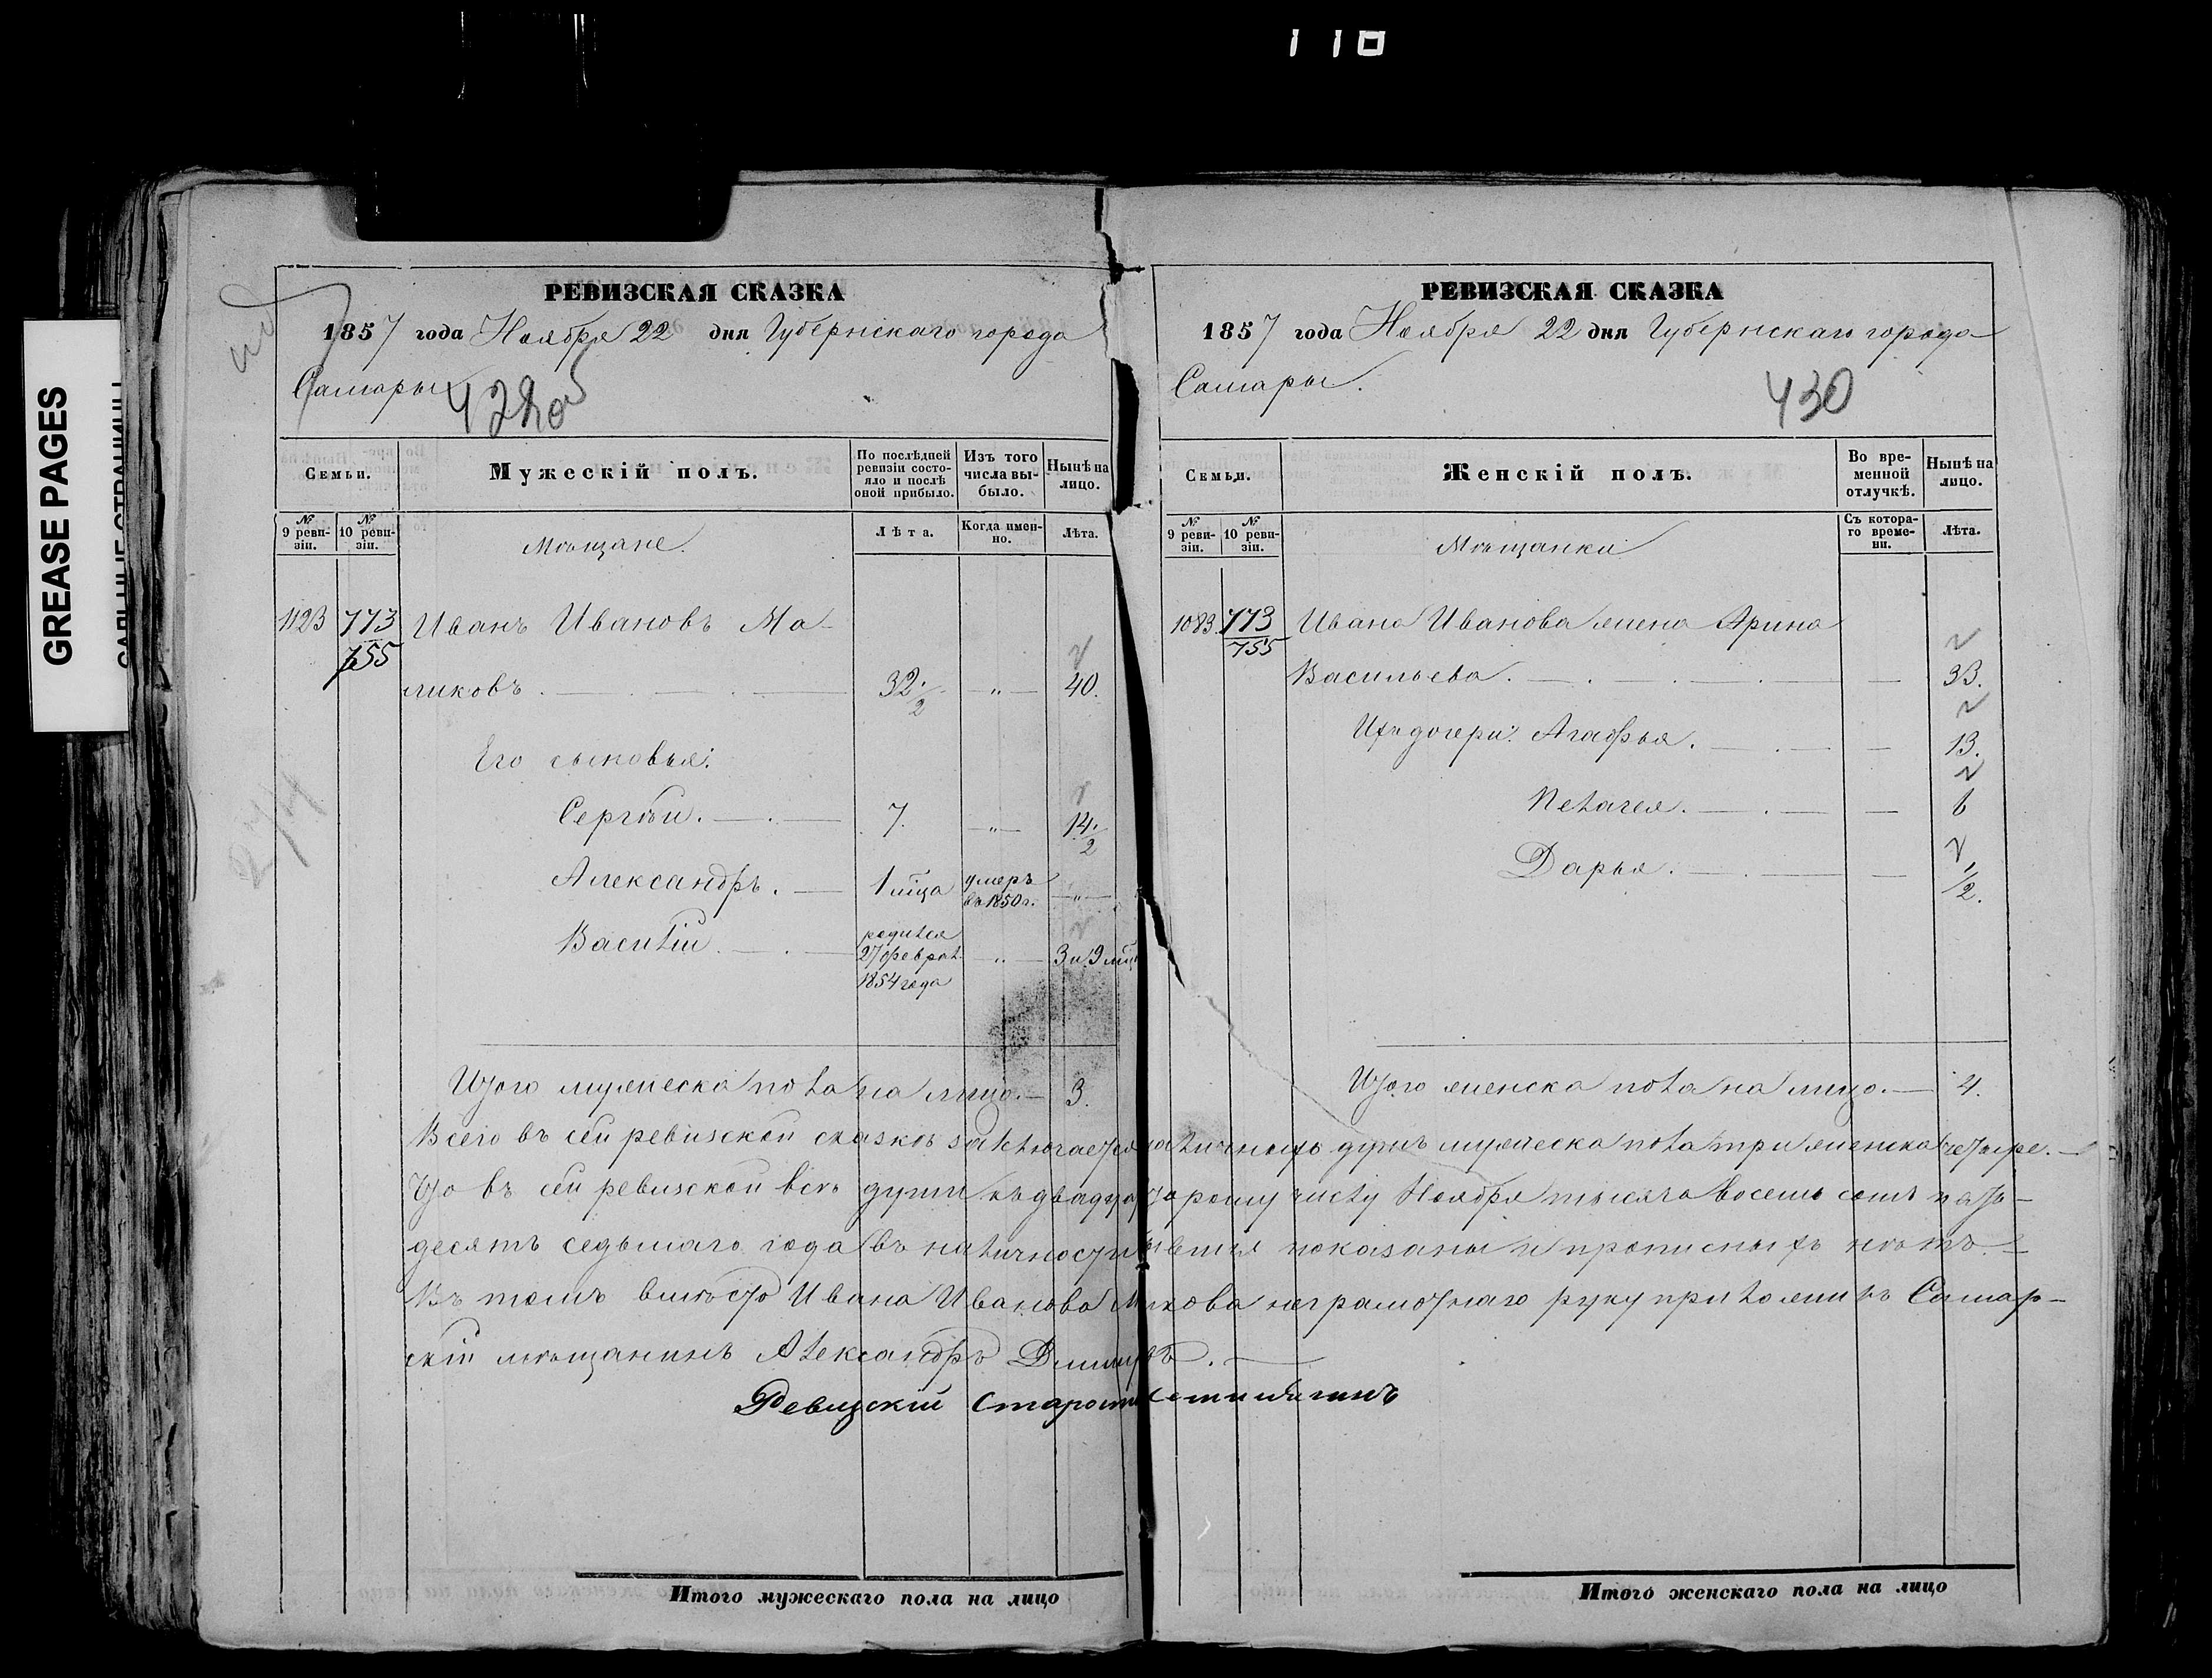 110
GREASE PAGES
РЕВИЗСКАЯ СКАЗКА
1857 года Ноября 22 дня Губернскаго города
Самары
Семьи.
Мужескій полъ.
По послѣдней ревизіи состо-
яло и послѣ
оной прибыло.
Изъ того
числа вы-
было.
Нынѣ на
лицо.
№ 9 реви-
зіи.
№ 10 реви-
зіи.
Мѣщане.
Лѣта.
Когда имен-
но.
Лѣта.
1123 773 Иванъ Ивановъ Ма-
755
ликовъ. 32 1/2 " 40.
Его сыновья:
Сергѣй. 7. " 14 1/2
Александръ. 1 мѣца умеръ въ 1850 г. "
Василій. родился 27 феврал. 1854 года " 3 и 9 мѣц
Итого мужеска пола на лицо. 3.
РЕВИЗСКАЯ СКАЗКА
1857 года Ноября 22 дня Губернскаго города
Самары.
430
Семьи.
Женскій полъ.
Во вре-
менной
отлучкѣ.
Нынѣ на
лицо.
№ 9 реви-
зіи.
№ 10 реви-
зіи.
Мѣщанки
Съ котора-
го време-
ни.
Лѣта.
1083. 773 Ивана Иванова жена Арина
755
Васильева. — 33.
Ихъ дочери: Агафья. — 13.
Пелагея. — 6
Дарья. — 1/2.
Итого женска пола на лицо. — 4.
Всего въ сей ревизской сказкѣ заключается наличныхъ душъ мужеска пола три женска четыре.
Что въ сей ревизской всѣ души къ двадцать второму числу Ноября тысяча восемь сотъ пять-
десятъ седьмаго года въ наличности показаны и прописныхъ нѣтъ.
Въ томъ вмѣсто Ивана Иванова неграмотнаго руку приложилъ Самар-
скій мѣщанинъ Александръ
Ревизскій Староста
Итого мужескаго пола на лицо
Итого женскаго пола на лицо